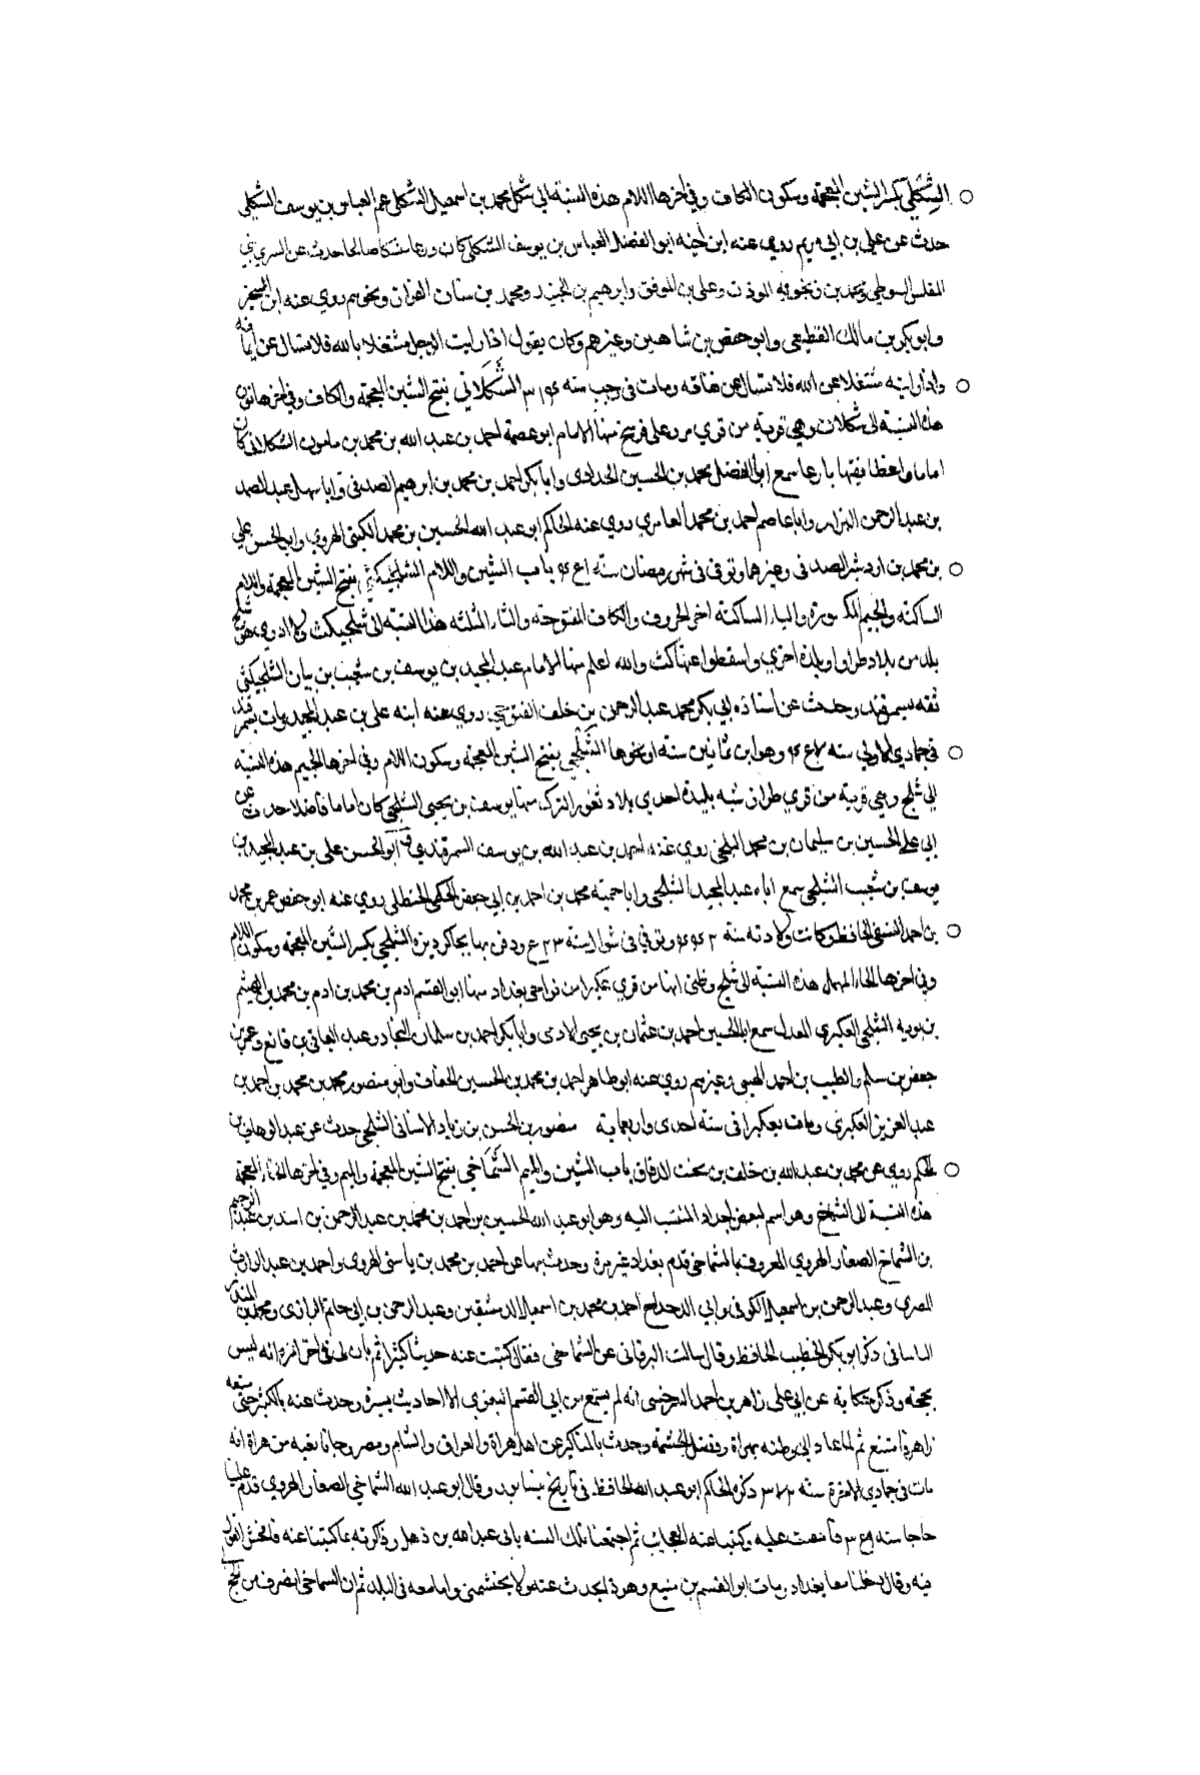 الشِّكلي بكسر الشين المعجمة وسكون الكاف وفي اخرها اللام هذه النسبة الى شكل محمد بن اسمعيل الشكلي عم العباس بن يوسف الشكلي
حدث عن علي بن ابي مريم روي عنه ابن اخيه ابو الفضل العباس بن يوسف الشكلي كان ورعا متنسكا صالحا حدث عن السري بن
المغلس السقطي ومحمد بن زنجويه المؤذن وعلي بن الموفق وابرهيم بن الجنيد ومحمد بن سنان القزاز ونحوهم روي عنه ابن
وابو بكر بن مالك القطيعي وابو حفص بن شاهين وغيرهم وكان يقول اذا رايت الرجل مشتغلا بالله فلا تسال عن ايمانه
واذا رايته مشتغلا عن الله فلا تسال عن نفاقه ومات في رجب سنه الشَّكلاني بفتح الشين المعجمة والكاف وفي اخرها نون
هذه النسبة الى شكلان وهي قرية من قري مرو علي فرسخ منها الامام ابو عصمة احمد بن عبد الله بن محمد بن مامون الشكلاني كان
اماما واعظا فقيها بارعا سمع ابا الفضل محمد بن الحسين الحدادي وابا بكر احمد بن محمد بن ابرهيم الصدفي وابا سهل عبد الصمد
بن عبد الرحمن البزاز وابا عاصم احمد بن محمد العامري روي عنه الحاكم ابو عبد الله الحسين بن محمد الكتبي الهروي وابو الحسن علي
بن محمد بن اردشير الصدفي وغيرهما وتوفي في شهر رمضان سنة باب الشين واللام الشلجيكثي بفتح الشين المعجمة واللام
الساكنة والجيم المكسورة والياء الساكنة اخر الحروف والكاف المفتوحة والثاء المثلثه هذه النسبة الى شلجيكث ولا ادري هي شلج
بلد من بلاد طراز او بلدة اخري واسقطوا عنها كث والله اعلم منها الامام عبد المجيد بن يوسف بن شعيب بن بيان الشلجيكثي
تفقه بسمرقند وحدث عن استاذه ابي بكر محمد عبد الرحمن بن خلف روي عنه ابنه علي بن عبد المجيد ومات بسمرقند
في جمادي الاولي سنه وهو ابن ثمانين سنة او نحوها الشَّلْجي بفتح الشين المعجمة وسكون اللام وفي اخرها الجيم هذه النسبة
الي شلج وهي قرية من قري طراز شبه بليدة احدي بلاد ثغور الترك منها يوسف بن يحيى الشلجي كان اماما فاضلا حدث عن
ابي علي الحسين بن سليمان بن محمد البلخي روي عنه احمد بن عبد الله بن يوسف السمرقندي وابو الحسن علي بن عبد المجيد بن
يوسف بن شعيب الشلجي سمع اباه عبد المجيد الشلجي وابا حمية محمد بن احمد بن ابي جعفر الحكمي الحنظلي روي عنه ابو حفص عمر بن محمد
بن احمد النسفي الحافظ وكانت ولادته سنة وتوفي في شوال سنة ودفن بها بجاكرديزه الشلحي بكسر الشين المعجمة وسكون اللام
وفي اخرها الحاء المهملة هذه النسبة الى شلح وظني انها من قري عكبرا من نواحي بغداد منها ابو القسم ادم بن محمد بن ادم بن محمد بن الهيثم
بن توبه الشلحي العكبري المعدل سمع ابا الحسين احمد بن عثمان بن يحيى الادمي وابا بكر احمد بن سلمان النجاد وعبد الباقي بن قانع وعمر بن
جعفر بن سلم والطيب بن احمد الهيتي وغيرهم روي عنه ابو طاهر احمد بن محمد بن الحسين الخفاف وابو منصور محمد بن محمد بن احمد بن
عبد العزيز العكبري ومات بعكبرا في سنة احدى واربعماية منصور بن الحسن بن زياد الشلحي حدث عن عبد الوهاب بن
الحكم روي عن محمد بن عبد الله بن خلف بن بخيت الدقاق باب الشين والميم الشَّمّاخي بفتح الشين المعجمة والميم وفي اخرها الخاء المعجمة
هذه النسبة الى الشماخ وهو اسم لبعض اجداد المنتسب اليه وهو ابو عبد الله الحسين بن احمد بن محمد بن عبد الرحمن بن اسد بن عبد الرحيم
بن الشماخ الصفار الهروي المعروف بالشماخي قدم بغداد غير مرة وحدث بها عن احمد بن محمد بن ياسين الهروي واحمد بن عبد الوارث
المصري وعبد الرحمن بن اسمعيل الكوفي وابي الدحداح احمد بن محمد بن اسمعيل الدمشقيين وعبد الرحمن بن ابي حاتم الرازي ومحمد بن المنذر
الباساني ذكر ابو بكر الخطيب الحافظ وقال سالت البرقاني عن الشماخي فقال كتبت عنه حديثا كثيرا ثم بان لي في اخر امره انه ليس
بحجة وذكر حكاية عن ابي علي زاهر بن احمد السرخسي انه لم يسمع من ابي القسم البغوي الا احاديث يسيرة وحدث عنه بالكثير حتى منعه
زاهر فامتنع ثم لما عاد الي وطنه بهراة وفضل الحشمة وحدث بالمناكير عن اهل هراة والعراق والشام ومصر وجانا نعيه من هراة انه
مات في جمادي الاخرة سنة ذكره الحاكم ابو عبد الله الحافظ في تاريخ نيسابور وقال ابو عبد الله الشماخي الصفار الهروي قدم علينا
حاجا سنه فانتخبت عليه وكتبنا عنه العجايب ثم اجتمعنا تلك السنه بابي عبد الله بن ذهل وذاكرته بما كتبنا عنه فافحش القول
فيه وقال دخلنا معا بغداد ومات ابو القسم بن منيع وهوذا يحدث عنه ولا يحتشمني وانا معه في البلد ثم ان الشماخي انصرف من الحج